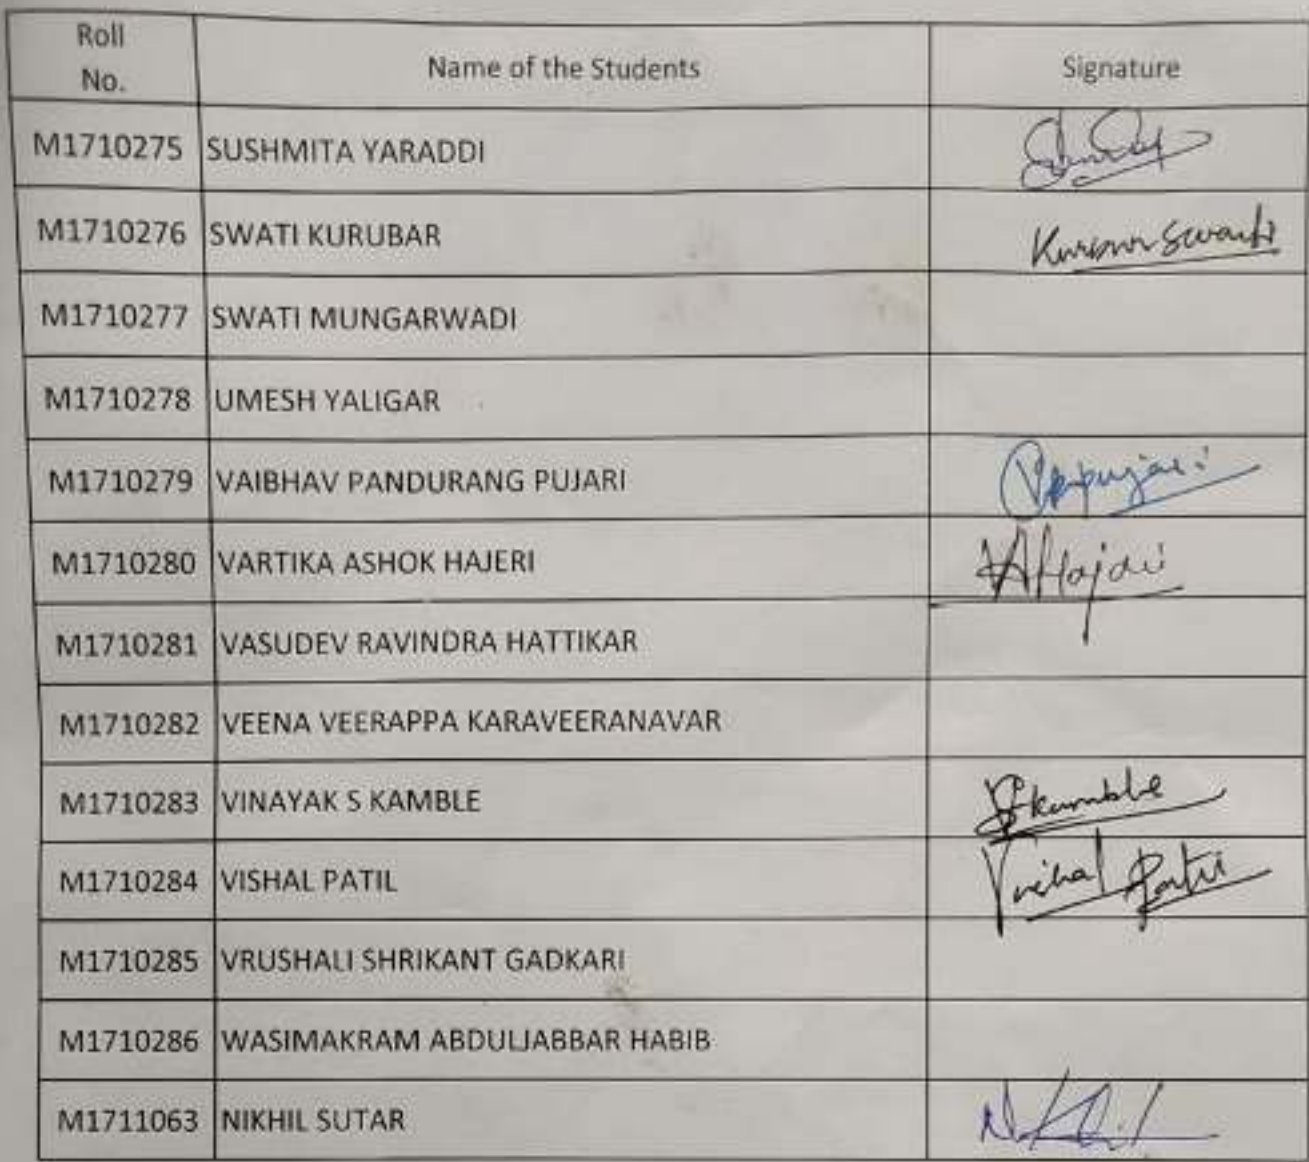 Roll No. Name of the Students Signature
M1710275 SUSHMITA YARADDI
M1710276 SWATI KURUBAR Kurubar Swati
M1710277 SWATI MUNGARWADI
M1710278 UMESH YALIGAR
M1710279 VAIBHAV PANDURANG PUJARI VPpujari
M1710280 VARTIKA ASHOK HAJERI VAHajeri
M1710281 VASUDEV RAVINDRA HATTIKAR
M1710282 VEENA VEERAPPA KARAVEERANAVAR
M1710283 VINAYAK S KAMBLE kamble
M1710284 VISHAL PATIL Vishal Patil
M1710285 VRUSHALI SHRIKANT GADKARI
M1710286 WASIMAKRAM ABDULJABBAR HABIB
M1711063 NIKHIL SUTAR Nikhil